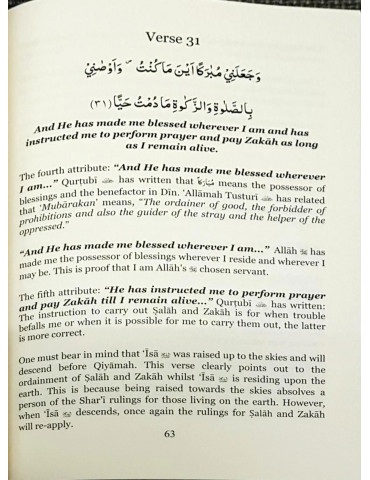 Verse 31
وَجَعَلَنِيْ مُبٰرَكًا اَيْنَ مَا كُنْتُ ۖ وَاَوْصٰنِيْ
بِالصَّلٰوةِ وَالزَّكٰوةِ مَا دُمْتُ حَيًّا ﴿٣١﴾
And He has made me blessed wherever I am and has
instructed me to perform prayer and pay Zakāh as long
as I remain alive.
The fourth attribute: “And He has made me blessed wherever
I am...” Qurṭubī has written that مُبَارَكًا means the possessor of
blessings and the benefactor in Dīn. ‘Allāmah Tusturī has related
that ‘Mubārakan’ means, “The ordainer of good, the forbidder of
prohibitions and also the guider of the stray and the helper of the
oppressed.”
“And He has made me blessed wherever I am...” Allāh has
made me the possessor of blessings wherever I reside and wherever I
may be. This is proof that I am Allāh’s chosen servant.
The fifth attribute: “He has instructed me to perform prayer
and pay Zakāh till I remain alive...” Qurṭubī has written:
The instruction to carry out Ṣalāh and Zakāh is for when trouble
befalls me or when it is possible for me to carry them out, the latter
is more correct.
One must bear in mind that ‘Īsā was raised up to the skies and will
descend before Qiyāmah. This verse clearly points out to the
ordainment of Ṣalāh and Zakāh whilst ‘Īsā is residing upon the
earth. This is because being raised towards the skies absolves a
person of the Shar‘ī rulings for those living on the earth. However,
when ‘Īsā descends, once again the rulings for Ṣalāh and Zakāh
will re-apply.
63